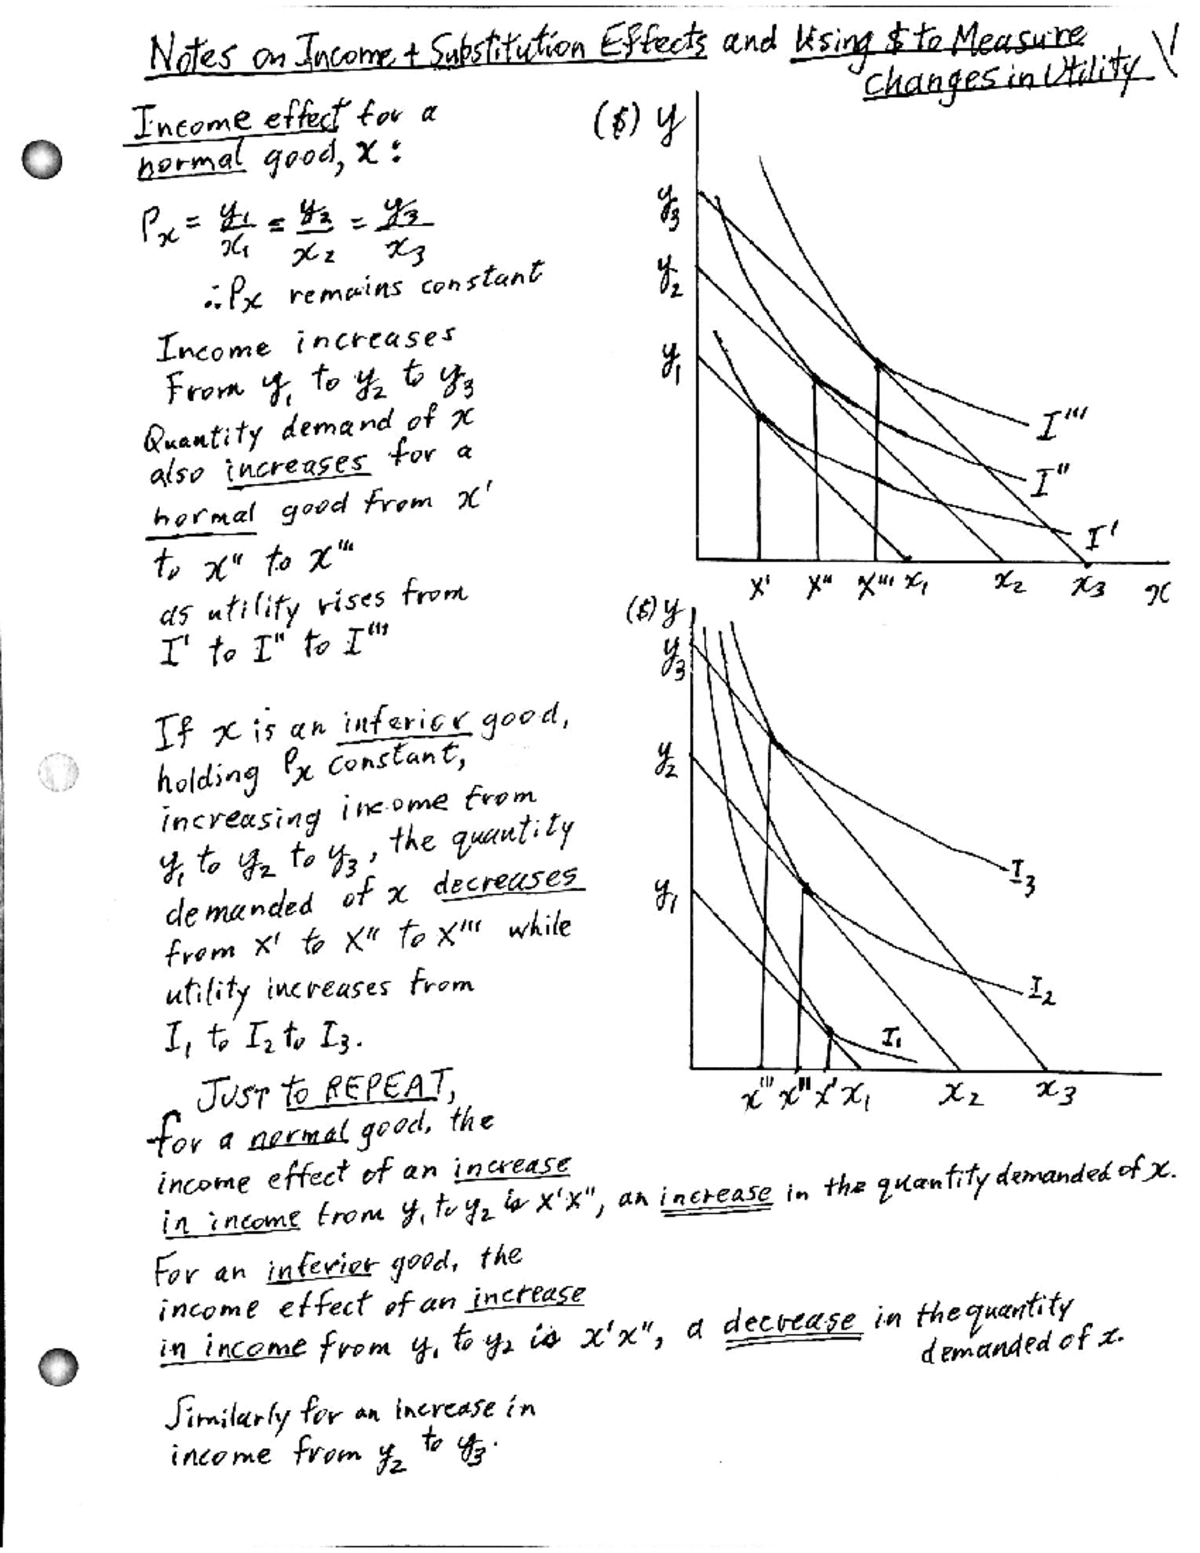 Notes on Income + Substitution Effects and Using $ to Measure
changes in Utility \1
Income effect for a
normal good, x :
Px = y₁/x₁ = y₂/x₂ = y₃/x₃
∴ Px remains constant
Income increases
From y₁ to y₂ to y₃
Quantity demand of x
also increases for a
normal good from x'
to x" to x'''
as utility rises from
I' to I" to I'''
($) y
y₃
y₂
y₁
I'''
I"
I'
x' x" x''' x₁ x₂ x₃ x
If x is an inferior good,
holding Px constant,
increasing income from
y₁ to y₂ to y₃, the quantity
demanded of x decreases
from x' to x" to x''' while
utility increases from
I₁ to I₂ to I₃.
($) y
y₃
y₂
y₁
I₃
I₂
I₁
x''' x" x' x₁ x₂ x₃
JUST to REPEAT,
for a normal good, the
income effect of an increase
in income from y₁ to y₂ is x'x", an increase in the quantity demanded of x.
For an inferior good, the
income effect of an increase
in income from y₁ to y₂ is x'x", a decrease in the quantity
demanded of x.
Similarly for an increase in
income from y₂ to y₃.